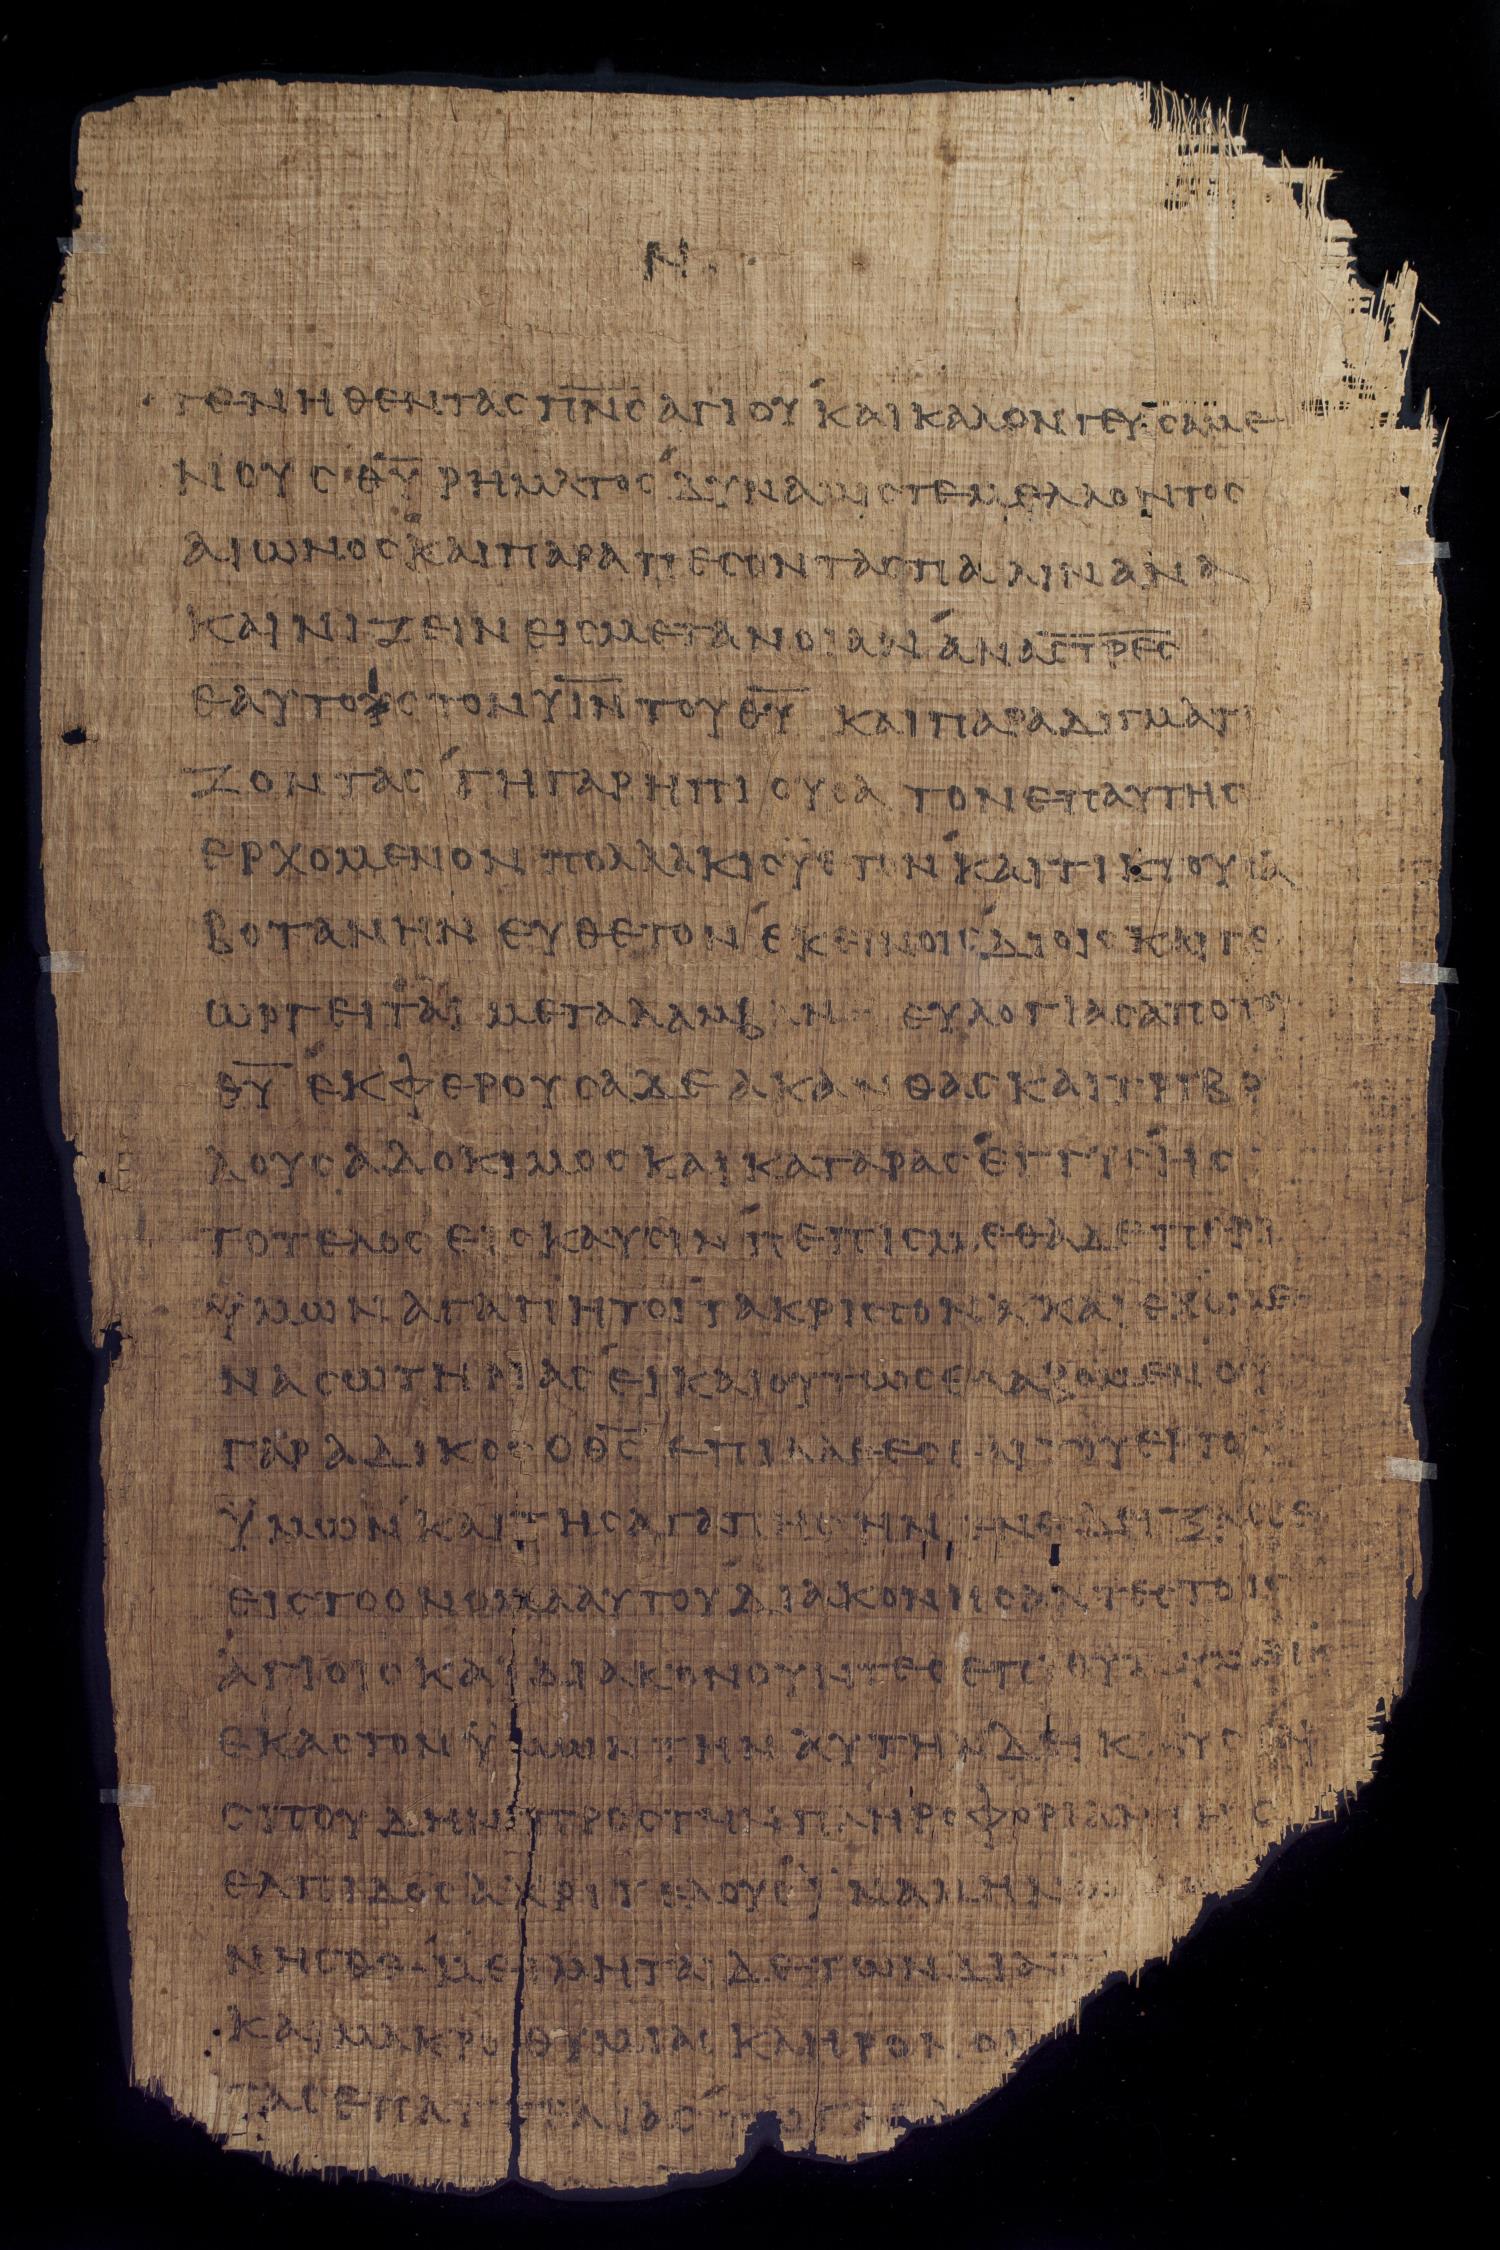 Ν
γενηθεντας π̅ν̅ς̅ αγιου και καλον γευσαμε
νιους θ̅υ̅ ρηματος δυναμις τε μελλοντος
αιωνος και παραπεσοντας παλιν ανα
καινιζειν εις μετανοιαν ανας̅τ̅ρ̅ες̅
εαυτους τον υ̅ι̅ν̅ του θ̅υ̅ και παραδιγματι
ζοντας γη γαρ η πιουσα τον επ αυτης
ερχομενον πολλακις υετον και τικτουσα
βοτανην ευθετον εκεινοις δι οις και γε
ωργειται μεταλαμβαν ευλογιας απο του
θ̅υ̅ εκφερουσα δε ακανθας και τριβο
λους αδοκιμος και καταρας εγγυς ης
το τελος εις καυσιν πεπισμεθα δε περι
υμων αγαπητοι τα κρισσονα και εχομε
να σωτηριας ει και ουτως ελαβομεν ου
γαρ αδικος ο θ̅ς̅ επιλαθεσθαι του εργου
υμων και της αγαπης ην ενεδιξασθε
εις το ονομα αυτου διακονησαντες τοις
αγιοις και διακονουντες επιθυμουμεν
εκαστον υμων την αυτην δικνυσθαι
σπουδην προς την πληροφοριαν της
ελπιδος αχρι τελους ινα μη ν
νησθε μειμηται δε των δια
και μακροθυμιας κληρονομ
τας επαγγελιας τω γαρ